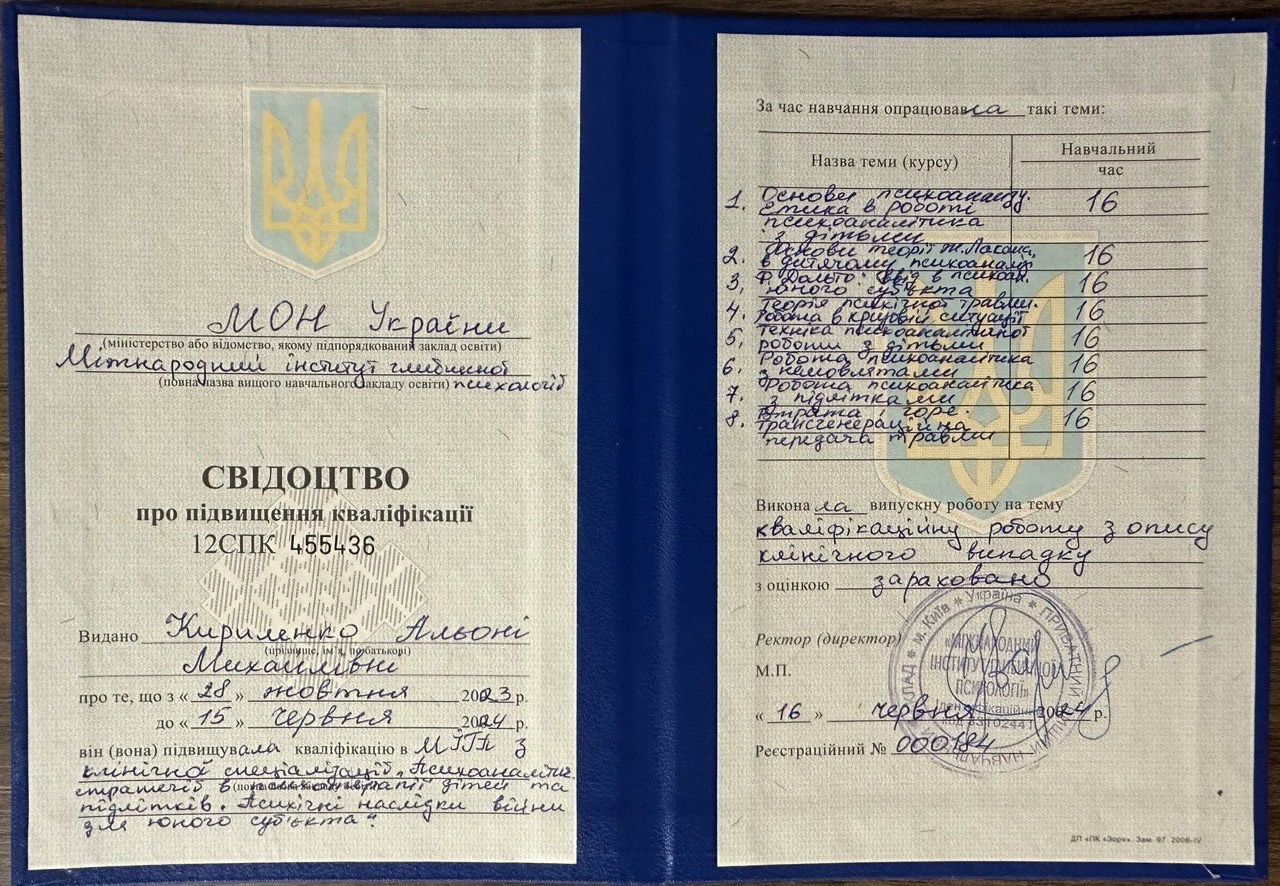 МОН України
(міністерство або відомство, якому підпорядкований заклад освіти)
Міжнародний інститут глибинної
(повна назва вищого навчального закладу освіти) психології
СВІДОЦТВО
про підвищення кваліфікації
12СПК 455436
Видано Кириленко Альоні
(прізвище, ім'я, по батькові)
Михайлівні
про те, що з « 28 » жовтня 2023 р.
до « 15 » червня 2024 р.
він (вона) підвищувала кваліфікацію в МІГП з
клінічної спеціалізації „Психоаналітич.
стратегії в психотерапії дітей та
підлітків. Психічні наслідки війни
для юного суб'єкта".
За час навчання опрацювала такі теми:
Назва теми (курсу)
Навчальний
час
1. Основи психоаналізу. 16
Етика в роботі
психоаналітика
з дітьми
2. Основи теорії Ж. Лакана 16
в дитячому психоаналізі
3. Ф. Дольто: Ввід в психоан. 16
юного суб'єкта
4. Теорія психічної травми. 16
Робота в кризовій ситуації
5. Техніка психоаналітичної 16
роботи з дітьми
6. Робота психоаналітика 16
з немовлятами
7. Робота психоаналітика 16
з підлітками
8. Втрата і горе. 16
Трансгенераційна
передача травми
Виконала випускну роботу на тему
кваліфікаційну роботу з опису
клінічного випадку
з оцінкою зараховано
Ректор (директор)
М.П.
« 16 » червня 2024 р.
Реєстраційний № 000184
м. Київ * Україна * ПРИВАТНИЙ
«МІЖНАРОДНИЙ
ІНСТИТУТ ГЛИБИННОЇ
ПСИХОЛОГІЇ»
ДП «ПК «Зоря». Зам. 97. 2006-IV